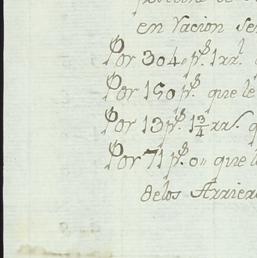 en racion se
Por 304 p.s 1 rr.l
Por 150 p.s que le
Por 13 p.s 1 3/4 rr.s q
Por 71 p.s 0,, que l
de los Arriero